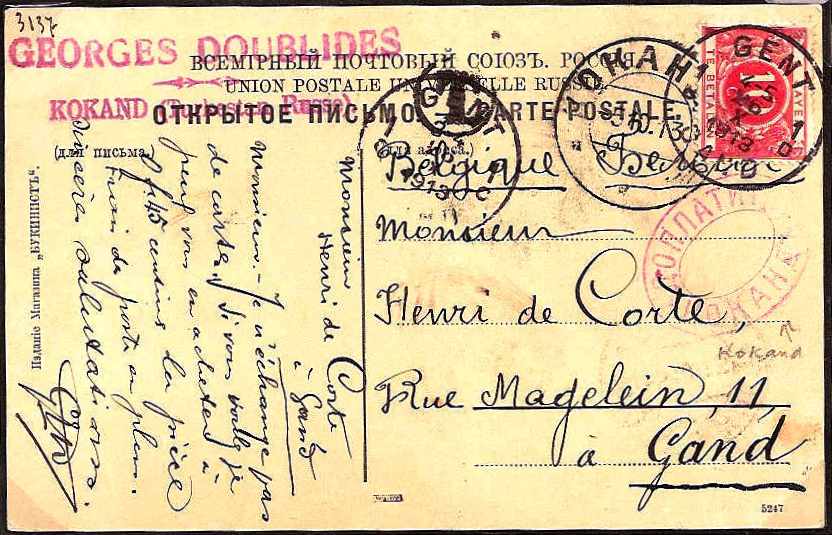 3137
GEORGES DOUBLIDES
ВСЕМІРНЫЙ ПОЧТОВЫЙ СОЮЗЪ. РОССІЯ
UNION POSTALE UNIVERSELLE RUSSIE
KOKAND (Turkestan Russe)
ОТКРЫТОЕ ПИСЬМО. CARTE POSTALE.
(для письма.)
(для адреса.)
GENT
1913
КОКАНД
GENT
1913
TE BETALEN
ДОПЛАТИТЬ
КОКАНД
Kokand
Belgique
Monsieur
Henri de Corte,
Rue Magelein, 11,
à Gand
Monsieur
Henri de Corte
à Gand
Monsieur. - Je n'échange pas
de cartes. Si vous voulez je
peux vous en acheter à
45 centimes la pièce
Frais de poste en plus.
Sincères salutations.
Изданіе Магазина „БУКИНИСТЪ“.
5247